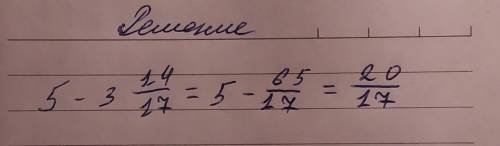 Решение
5 - 3 14/17 = 5 - 65/17 = 20/17